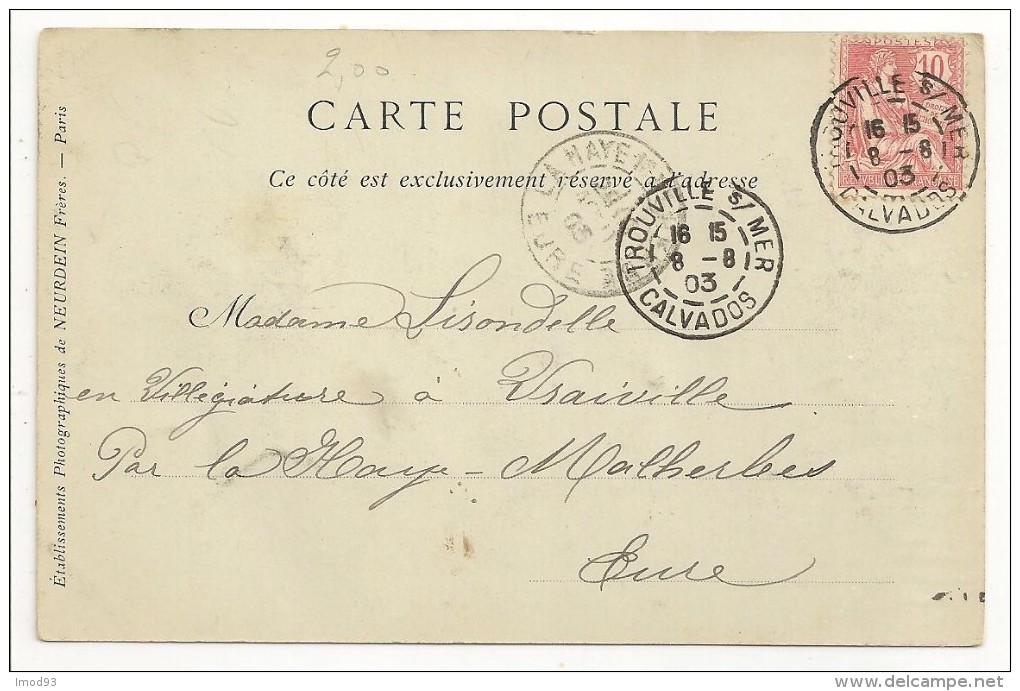 2,00
CARTE POSTALE
Ce côté est exclusivement réservé à l'adresse
POSTES
10
RÉPUBLIQUE FRANÇAISE
TROUVILLE s/ MER
16 15
8 - 8
03
CALVADOS
LA HAYE
03
EURE
TROUVILLE s/ MER
16 15
8 - 8
03
CALVADOS
Madame Lisondelle
en Villégiature à Vraiville
Par la Haye-Malherbes
Eure
Établissements Photographiques de NEURDEIN Frères. — Paris
lmod93
delcampe.net